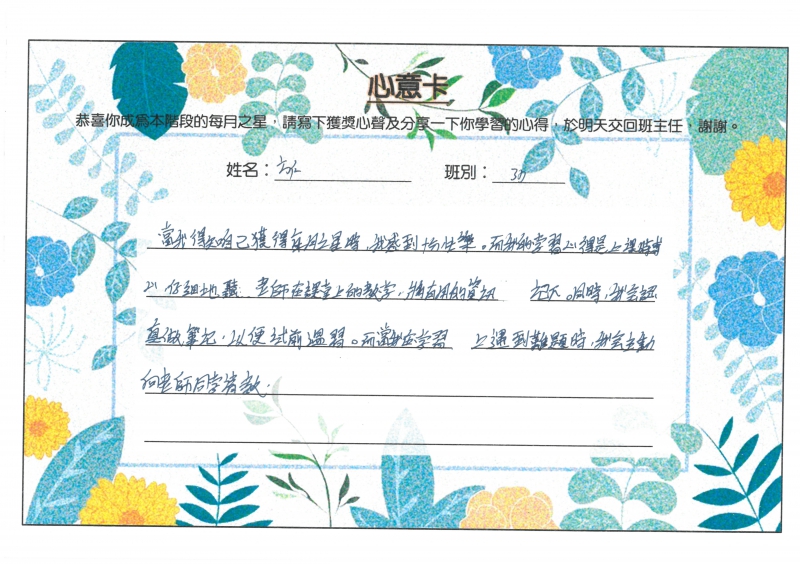 心意卡
恭喜你成為本階段的每月之星，請寫下獲獎心聲及分享一下你學習的心得，於明天交回班主任，謝謝。
姓名： 班別：
當我得知自己獲得每月之星時，我感到十分快樂。而我的學習心得是上課時專
心仔細地聽 老師在課堂上的教學，將有用的資訊 記下。同時，我會認
真做筆記，以便試前溫習。而當我在學習 上遇到難題時，我會主動
向老師同學請教